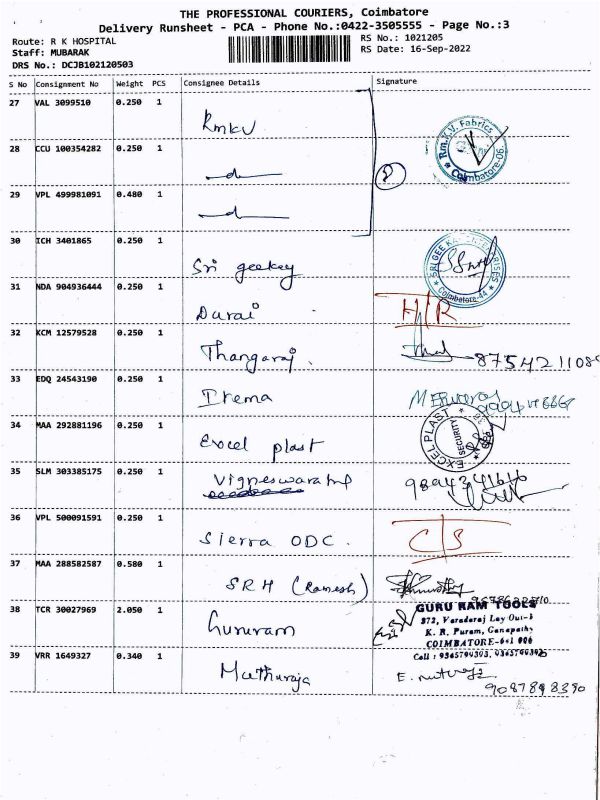 THE PROFESSIONAL COURIERS, Coimbatore
Delivery Runsheet - PCA - Phone No.:0422-3505555 - Page No.:3
Route: R K HOSPITAL
RS No.: 1021205
Staff: MUBARAK
RS Date: 16-Sep-2022
DRS No.: DCJB102120503
S No Consignment No Weight PCS Consignee Details Signature
27 VAL 3099510 0.250 1
Rmkv
28 CCU 100354282 0.250 1
Rm.K.V. Fabrics
Coimbatore-06.
29 VPL 499981091 0.480 1
30 ICH 3401865 0.250 1
Sri geekey
SRI GEE KAY ENTERPRISES
Coimbatore-44
31 NDA 904936444 0.250 1
Durai
H/R
32 KCM 12579528 0.250 1
Thangaraj.
33 EDQ 24543190 0.250 1
Prema
34 MAA 292881196 0.250 1
Excel plast
EXCEL PLAST
SECURITY
35 SLM 303385175 0.250 1
36 VPL 500091591 0.250 1
Sierra ODC.
C/S
37 MAA 288582587 0.580 1
SRH (Ramesh)
38 TCR 30027969 2.050 1
Gururam
GURU RAM TOOLS
K. R. Puram, Ganapathy
COIMBATORE-641 006
39 VRR 1649327 0.340 1
Muthuraja
9087898390